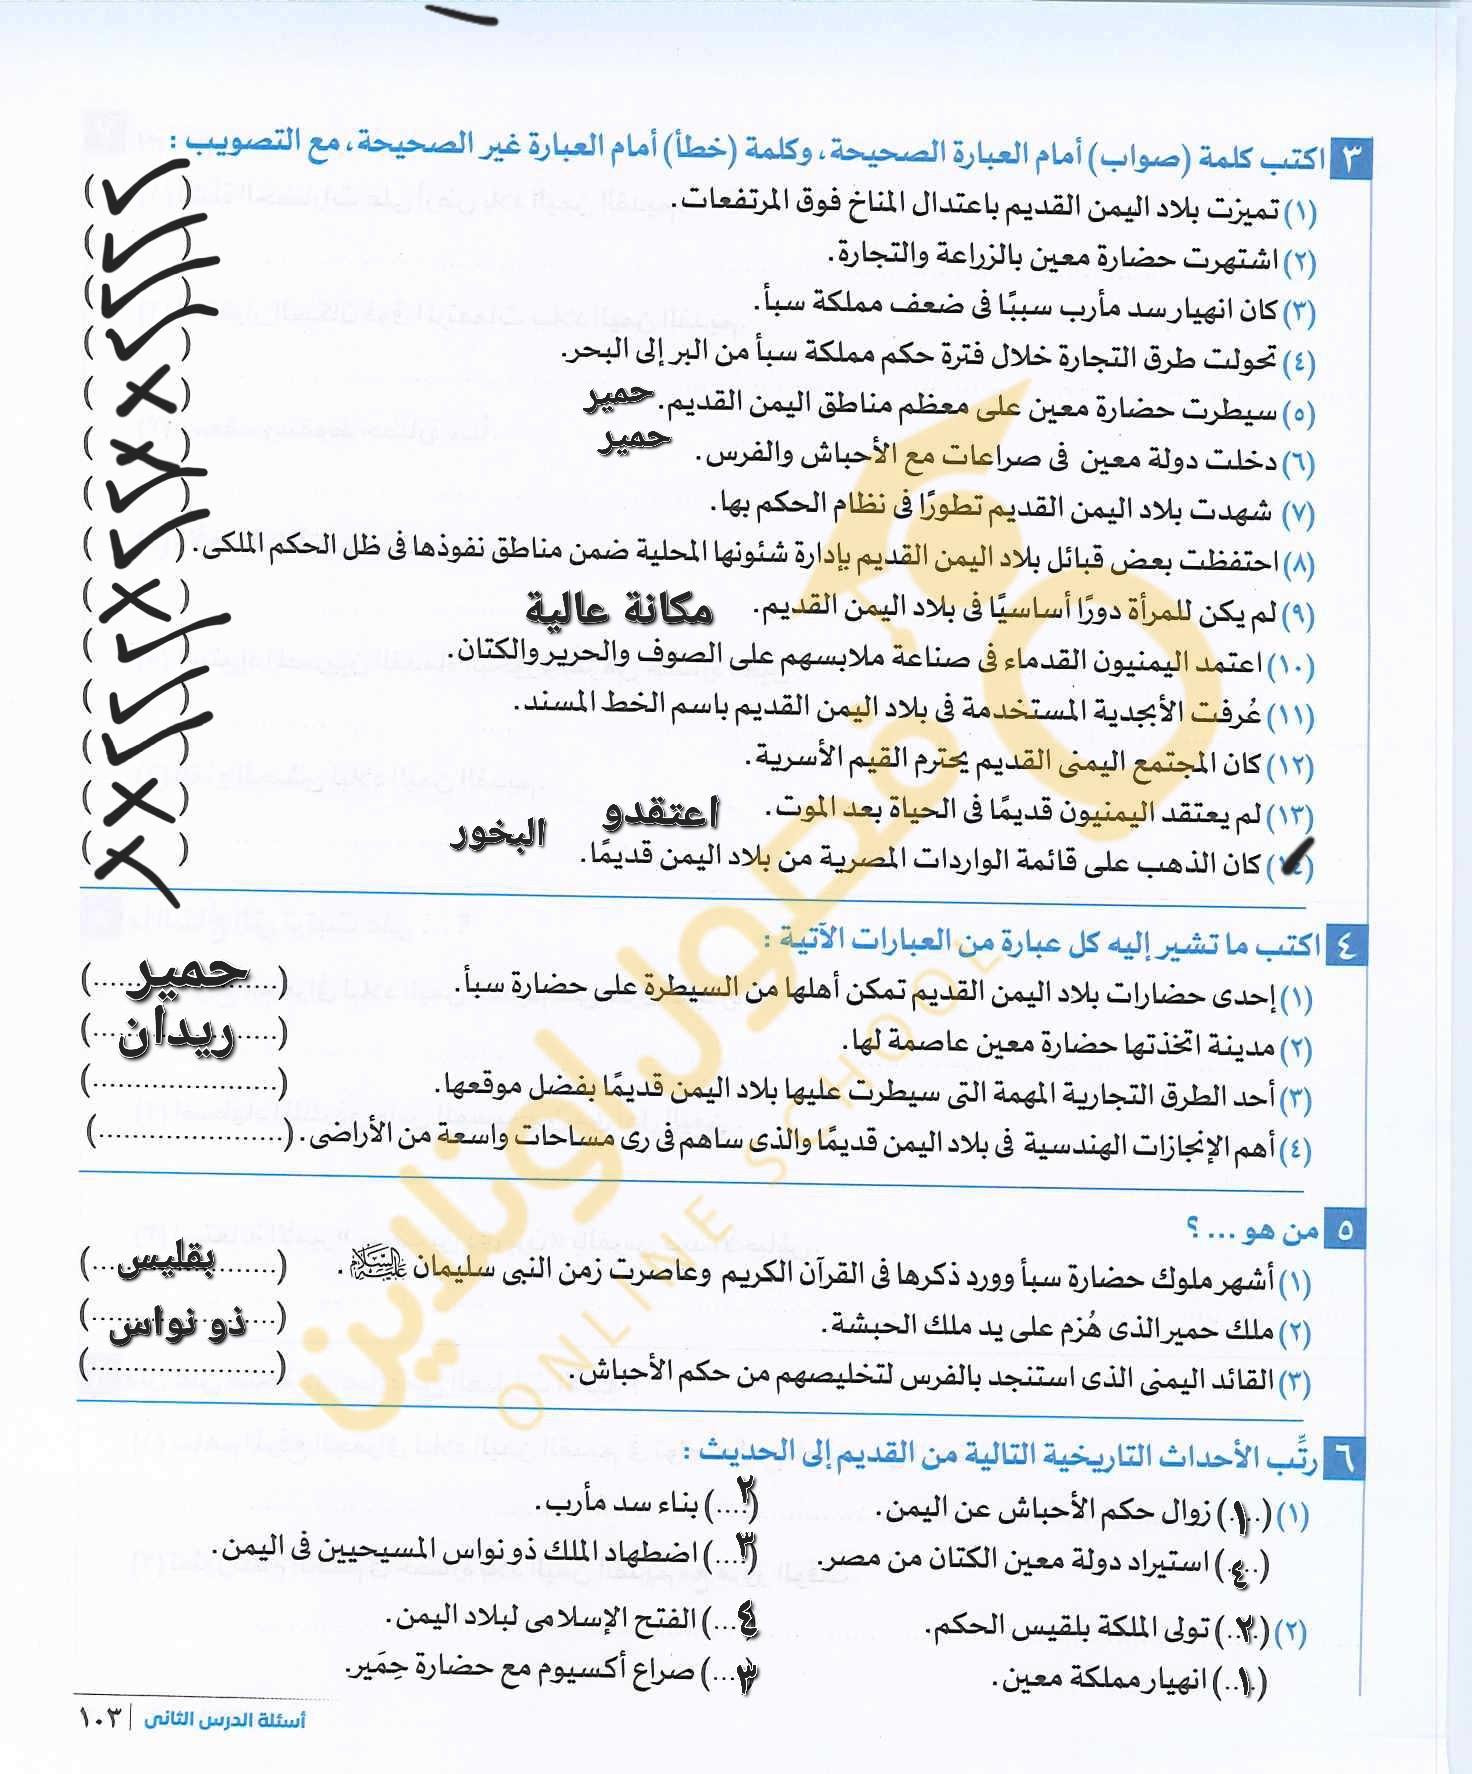 ٣ اكتب كلمة (صواب) أمام العبارة الصحيحة، وكلمة (خطأ) أمام العبارة غير الصحيحة، مع التصويب :
(١) تميزت بلاد اليمن القديم باعتدال المناخ فوق المرتفعات. ( ✓ )
(٢) اشتهرت حضارة معين بالزراعة والتجارة. ( ✓ )
(٣) كان انهيار سد مأرب سببًا فى ضعف مملكة سبأ. ( ✓ )
(٤) تحولت طرق التجارة خلال فترة حكم مملكة سبأ من البر إلى البحر. ( ✓ )
(٥) سيطرت حضارة معين على معظم مناطق اليمن القديم. حمير ( × )
(٦) دخلت دولة معين فى صراعات مع الأحباش والفرس. حمير ( × )
(٧) شهدت بلاد اليمن القديم تطورًا فى نظام الحكم بها. ( ✓ )
(٨) احتفظت بعض قبائل بلاد اليمن القديم بإدارة شئونها المحلية ضمن مناطق نفوذها فى ظل الحكم الملكى. ( ✓ )
(٩) لم يكن للمرأة دورًا أساسيًا فى بلاد اليمن القديم. مكانة عالية ( × )
(١٠) اعتمد اليمنيون القدماء فى صناعة ملابسهم على الصوف والحرير والكتان. ( ✓ )
(١١) عُرفت الأبجدية المستخدمة فى بلاد اليمن القديم باسم الخط المسند. ( ✓ )
(١٢) كان المجتمع اليمنى القديم يحترم القيم الأسرية. ( ✓ )
(١٣) لم يعتقد اليمنيون قديمًا فى الحياة بعد الموت. اعتقدو ( × )
(١٤) كان الذهب على قائمة الواردات المصرية من بلاد اليمن قديمًا. البخور ( × )
٤ اكتب ما تشير إليه كل عبارة من العبارات الآتية :
(١) إحدى حضارات بلاد اليمن القديم تمكن أهلها من السيطرة على حضارة سبأ. (حمير)
(٢) مدينة اتخذتها حضارة معين عاصمة لها. (ريدان)
(٣) أحد الطرق التجارية المهمة التى سيطرت عليها بلاد اليمن قديمًا بفضل موقعها. (......................)
(٤) أهم الإنجازات الهندسية فى بلاد اليمن قديمًا والذى ساهم فى رى مساحات واسعة من الأراضى. (......................)
٥ من هو ... ؟
(١) أشهر ملوك حضارة سبأ وورد ذكرها فى القرآن الكريم وعاصرت زمن النبى سليمان عليه السلام. (بقليس)
(٢) ملك حمير الذى هُزم على يد ملك الحبشة. (ذو نواس)
(٣) القائد اليمنى الذى استنجد بالفرس لتخليصهم من حكم الأحباش. (......................)
٦ رتِّب الأحداث التاريخية التالية من القديم إلى الحديث :
(١) (١) زوال حكم الأحباش عن اليمن. (٢) بناء سد مأرب.
(٤) استيراد دولة معين الكتان من مصر. (٣) اضطهاد الملك ذو نواس المسيحيين فى اليمن.
(٢) (٢) تولى الملكة بلقيس الحكم. (٤) الفتح الإسلامى لبلاد اليمن.
(١) انهيار مملكة معين. (٣) صراع أكسيوم مع حضارة حِمَير.
أسئلة الدرس الثانى | ١٠٣
فصول اونلاين
ONLINE SCHOOL